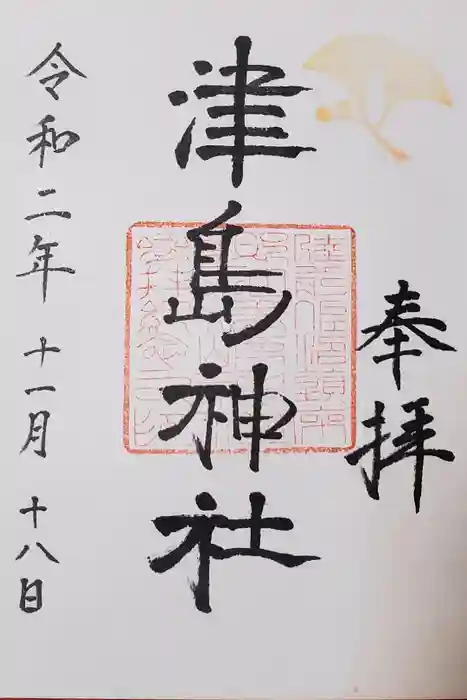 奉拝
津島神社
令和二年 十一月 十八日